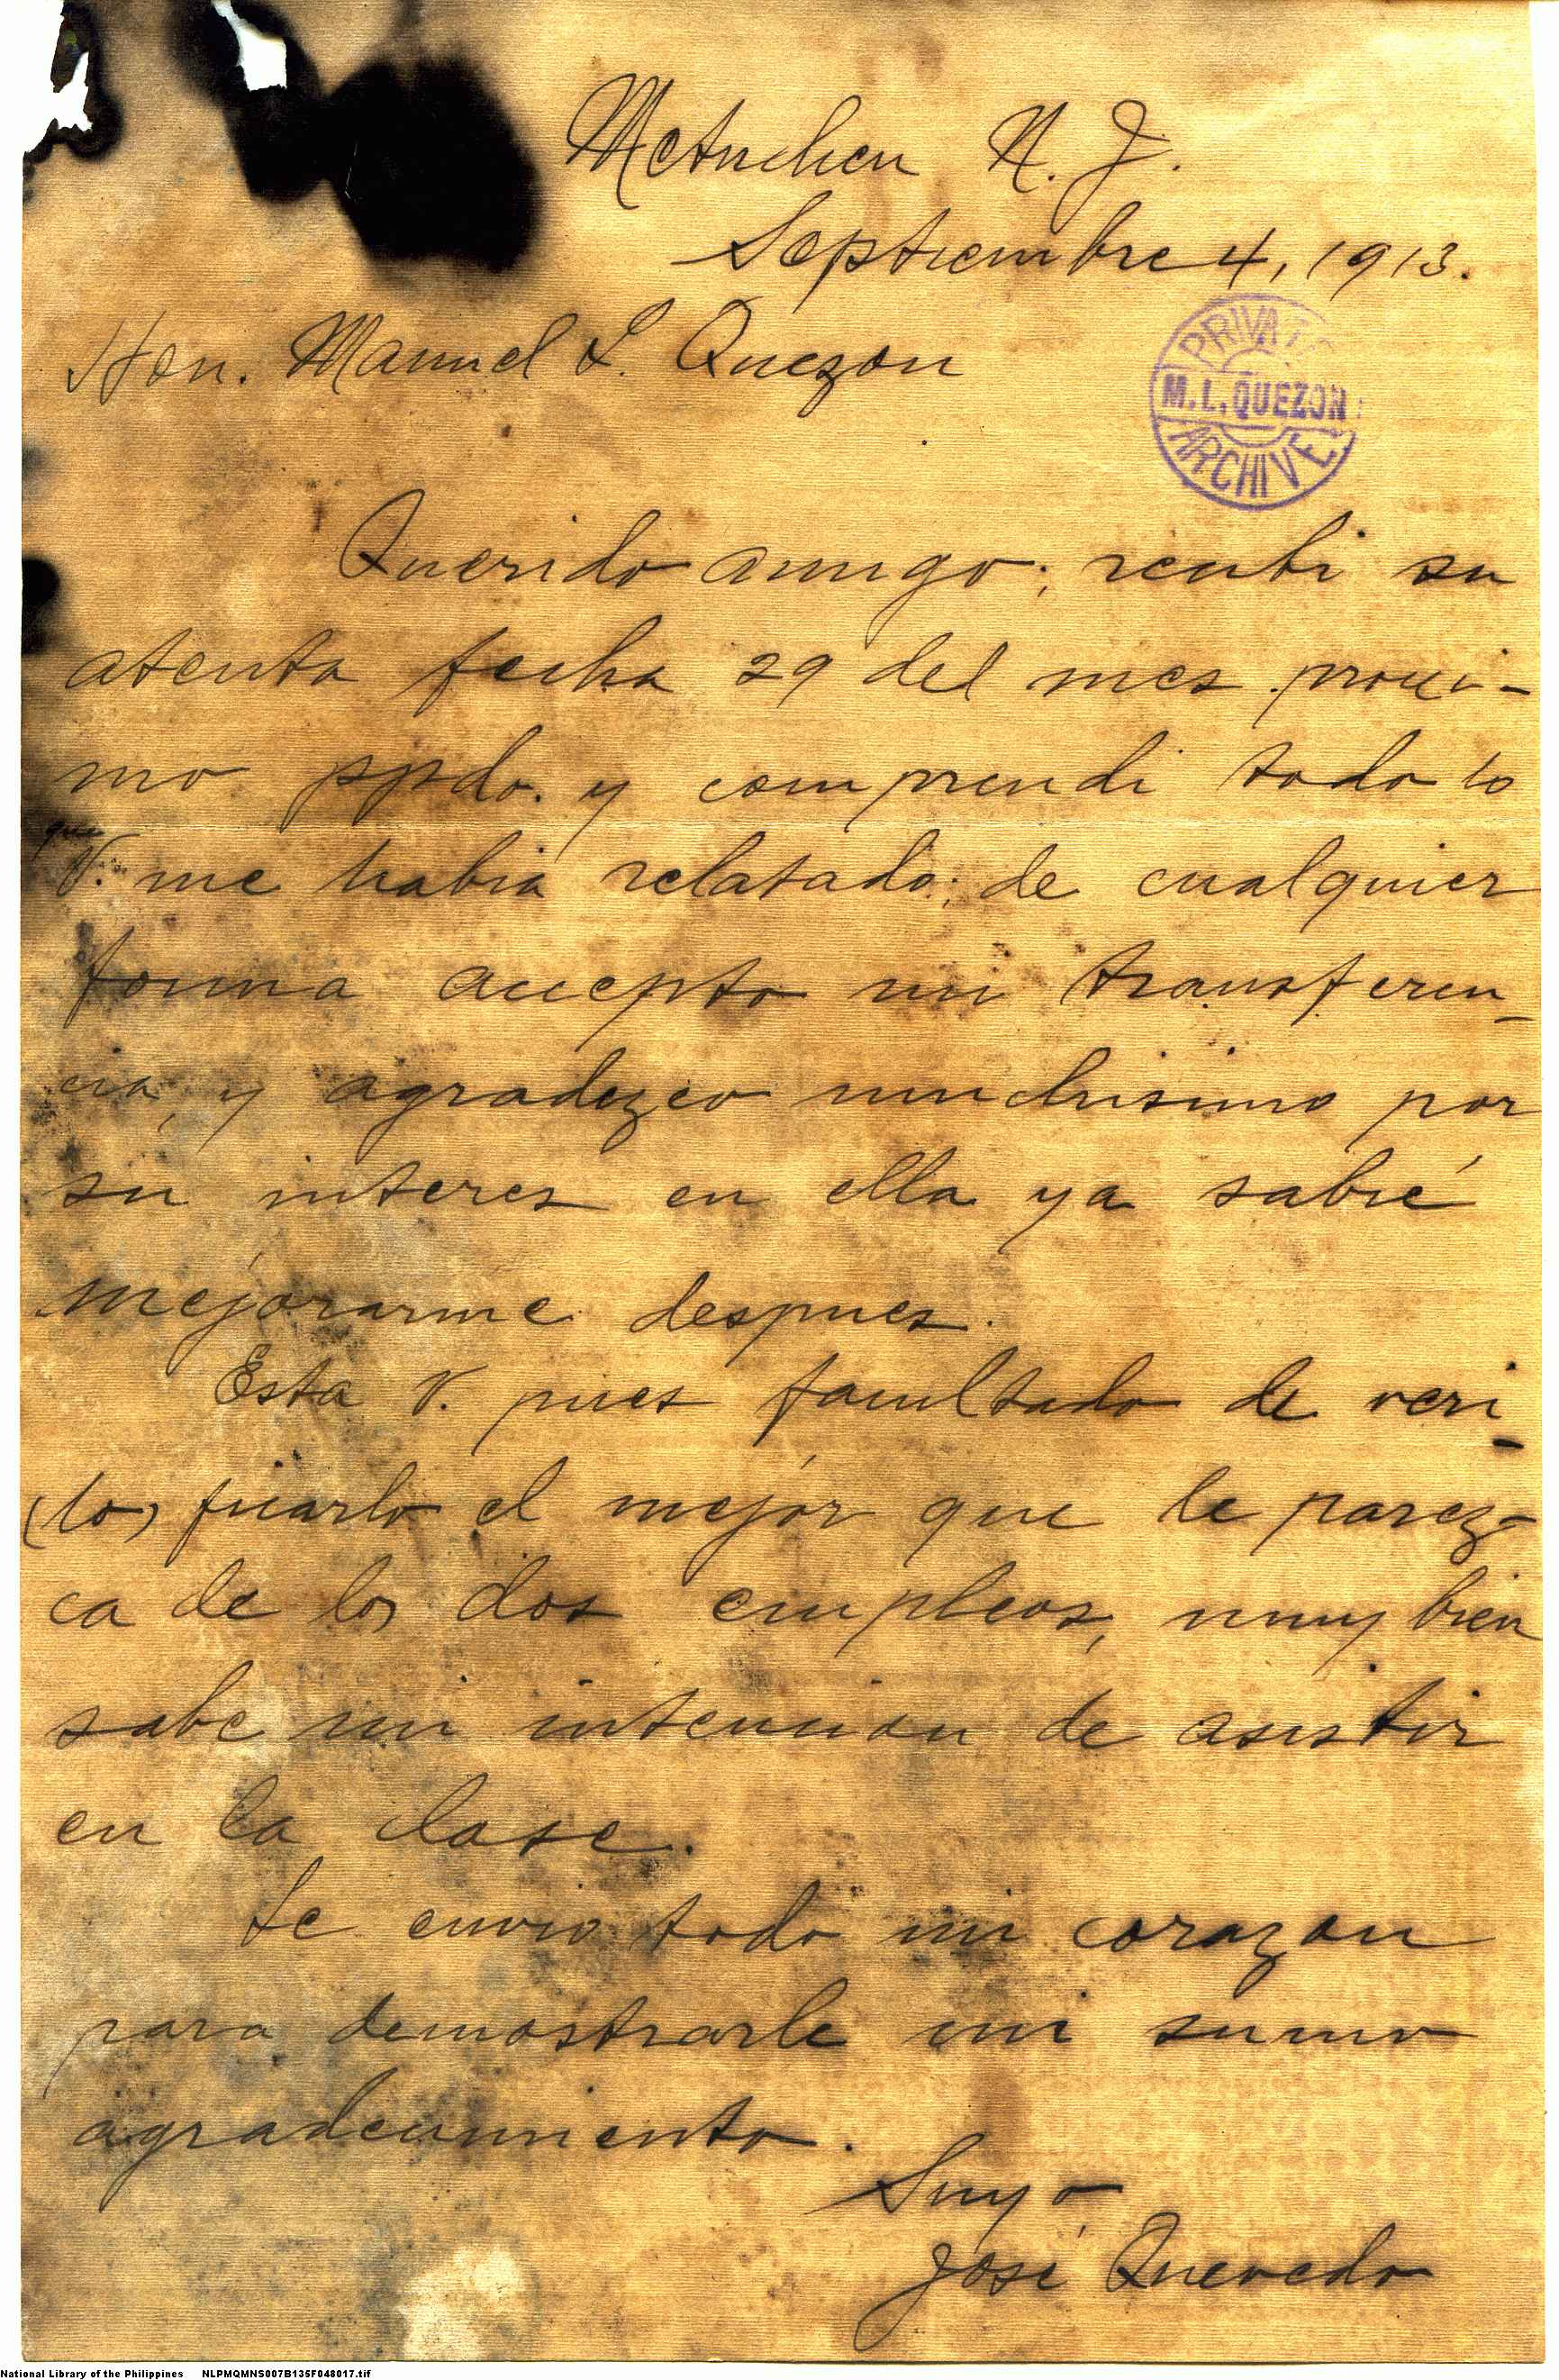 Metuchen N. J.
Septiembre 4, 1913.
Hon. Manuel L. Quezon
PRIVATE
M. L. QUEZON
ARCHIVE
Querido amigo; recibi su
atenta fecha 29 del mes proxi-
mo ppdo. y comprendi todo lo
que
V. me habia relatado; de cualquier
forma accepto mi transferen-
cia, y agradezco muchisimo por
su interes en ella ya sabré
mejorarme despues.
Esta V. pues facultado de veri-
(lo) ficarlo el mejor que le parez-
ca de los dos empleos, muy bien
sabe mi intencion de asistir
en la clase.
Le envio todo mi corazon
para demostrarle mi sumo
agradecimiento.
Suyo
José Quevedo
National Library of the Philippines NLPMQMNS007B135F048017.tif